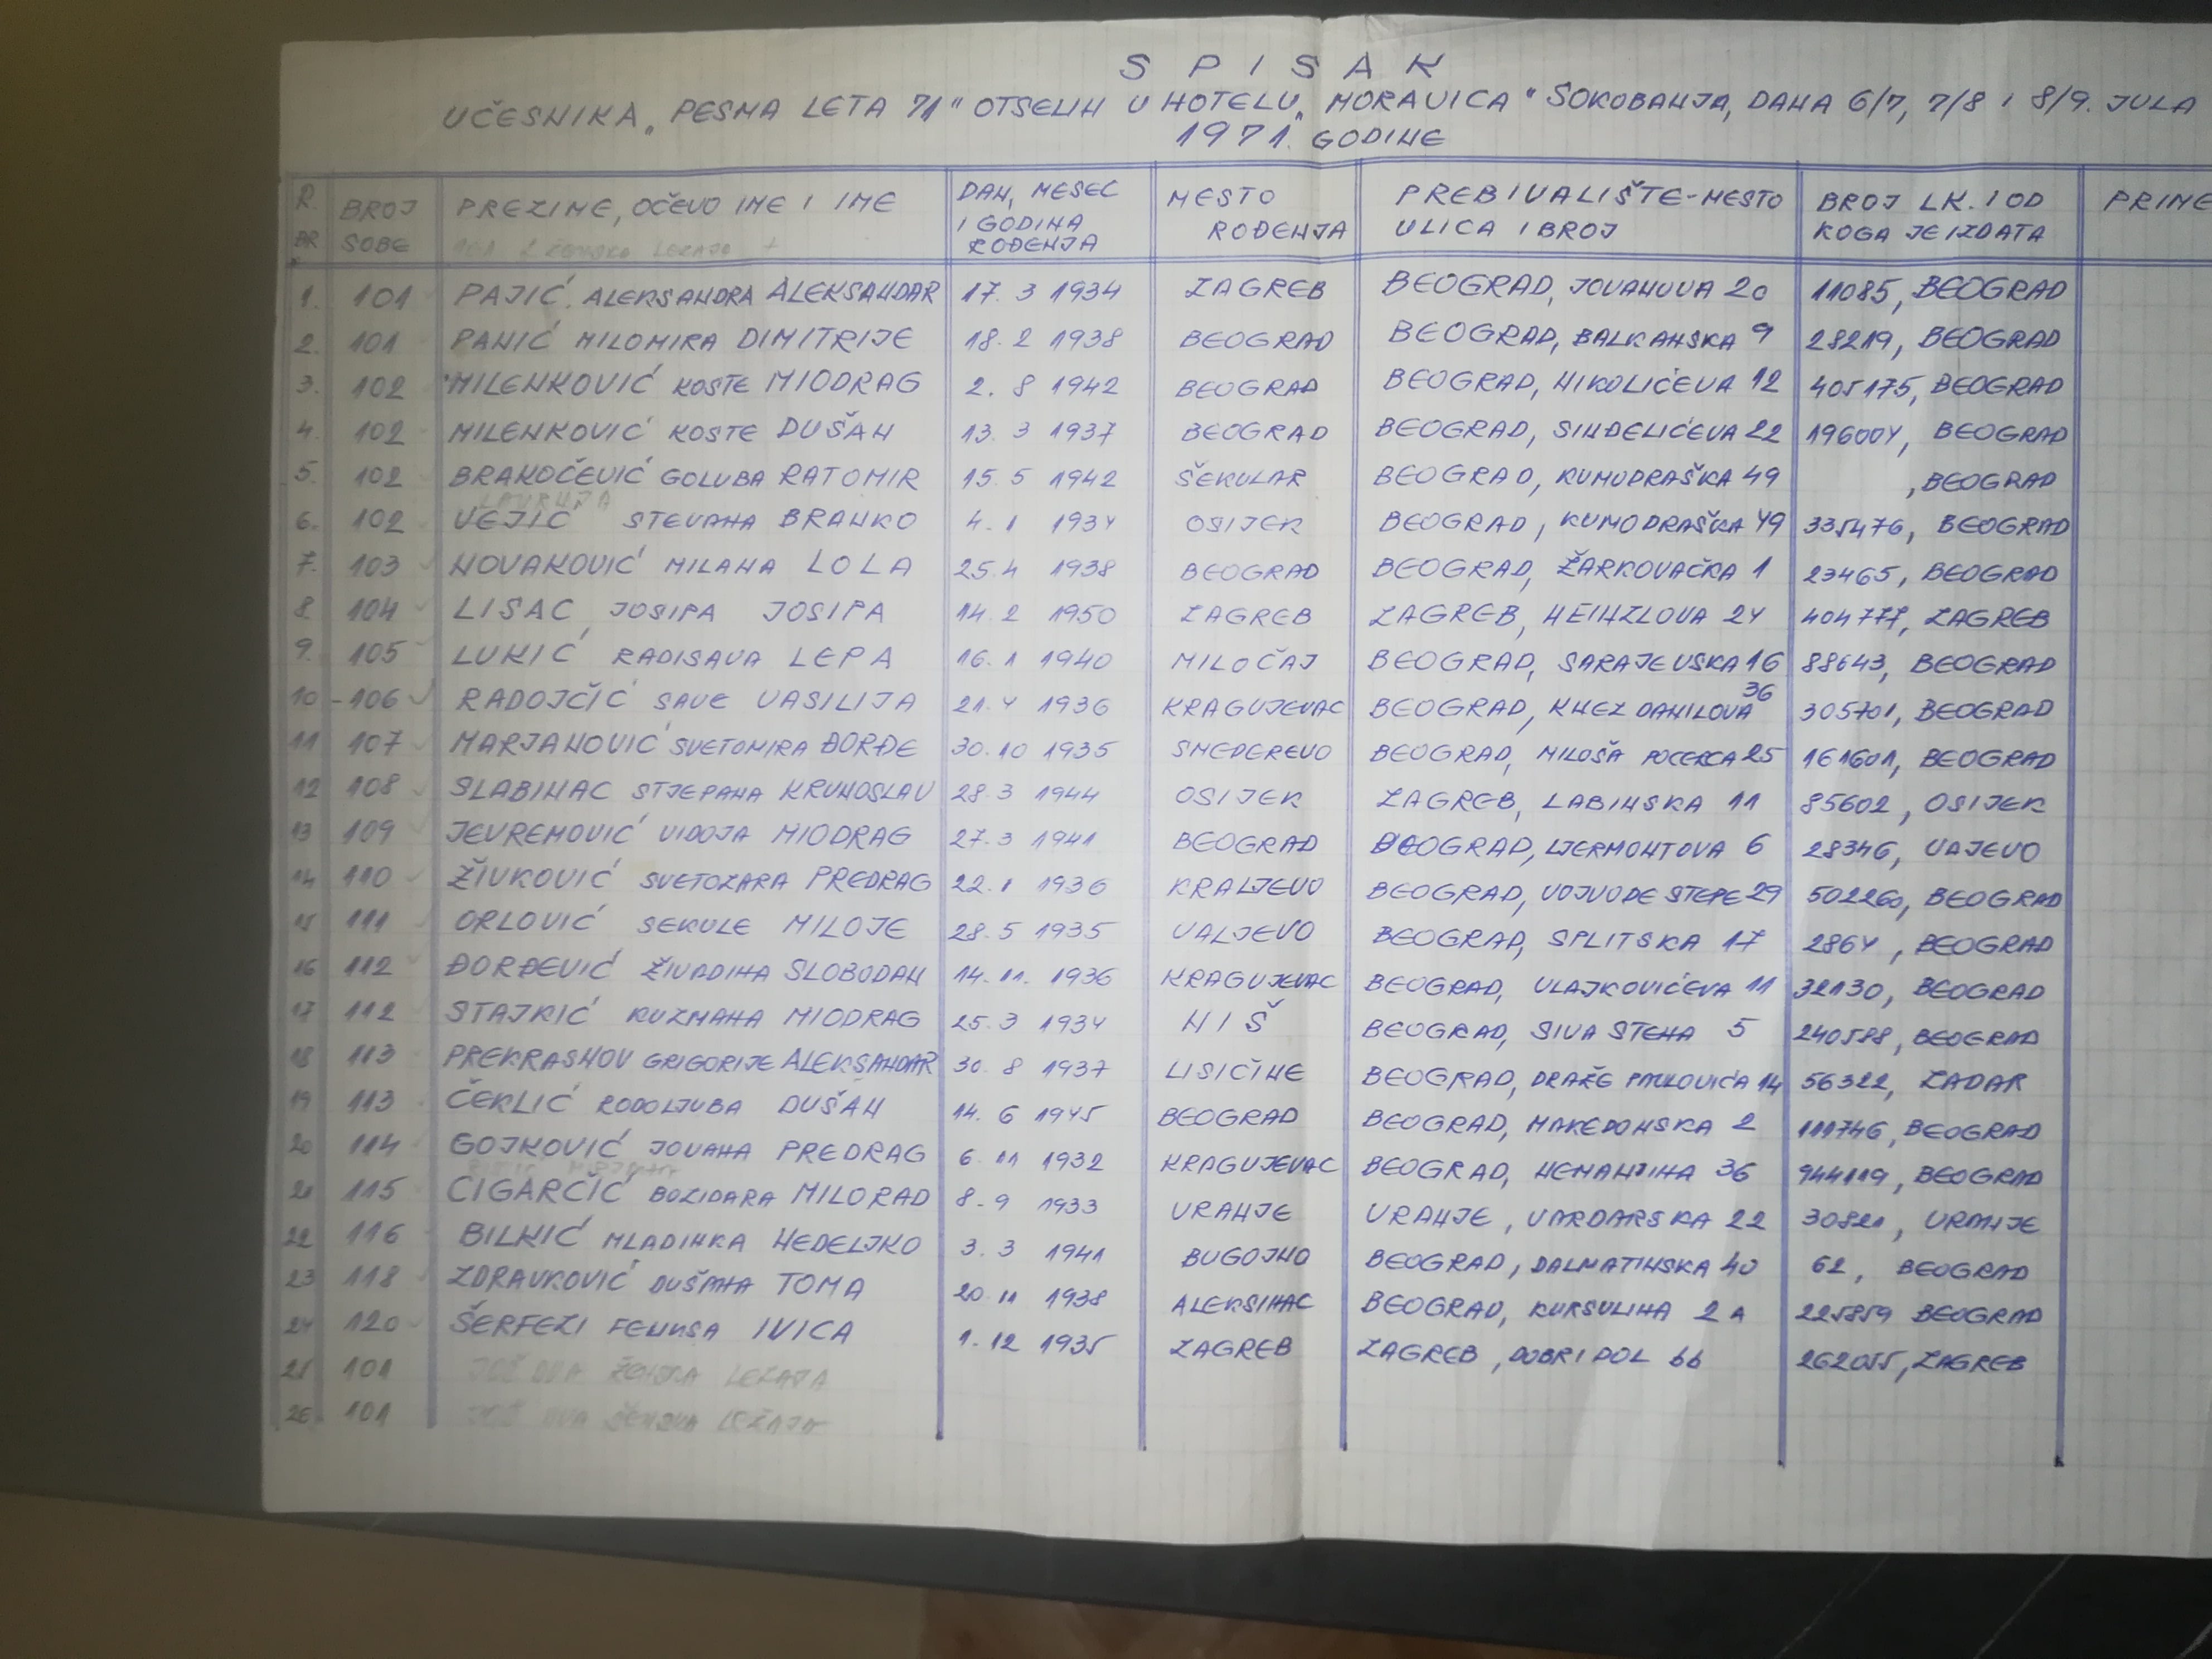 SPISAK
UČESNIKA „PESMA LETA 71" OTSELIH U HOTELU „MORAVICA" SOKOBANJA, DANA 6/7, 7/8 I 8/9. JULA
1971. GODINE
R. BR BROJ SOBE PREZIME, OČEVO IME I IME DAN, MESEC I GODINA ROĐENJA MESTO ROĐENJA PREBIVALIŠTE-MESTO ULICA I BROJ BROJ LK. I OD KOGA JE IZDATA PRIME
1. 101 PAJIĆ ALEKSANDRA ALEKSANDAR 17. 3 1934 ZAGREB BEOGRAD, JOVANOVA 20 11085, BEOGRAD
2. 101 PANIĆ MILOMIRA DIMITRIJE 18. 2 1938 BEOGRAD BEOGRAD, BALKANSKA 9 28219, BEOGRAD
3. 102 MILENKOVIĆ KOSTE MIODRAG 2. 8 1942 BEOGRAD BEOGRAD, NIKOLIĆEVA 12 405175, BEOGRAD
4. 102 MILENKOVIĆ KOSTE DUŠAN 13. 3 1937 BEOGRAD BEOGRAD, SINĐELIĆEVA 22 196004, BEOGRAD
5. 102 BRAKOČEVIĆ GOLUBA RATOMIR 15. 5 1942 ŠEKULAR BEOGRAD, KUMODRAŠKA 49 , BEOGRAD
6. 102 VEJIĆ STEVANA BRANKO 4. 1 1934 OSIJEK BEOGRAD, KUMODRAŠKA 49 335476, BEOGRAD
7. 103 NOVAKOVIĆ MILANA LOLA 25. 4 1938 BEOGRAD BEOGRAD, ŽARKOVAČKA 1 23465, BEOGRAD
8. 104 LISAC JOSIPA JOSIPA 14. 2 1950 ZAGREB ZAGREB, HEINZLOVA 24 404777, ZAGREB
9. 105 LUKIĆ RADISAVA LEPA 16. 1 1940 MILOČAJ BEOGRAD, SARAJEVSKA 16 88643, BEOGRAD
10 - 106 RADOJČIĆ SAVE VASILIJA 21. 4 1936 KRAGUJEVAC BEOGRAD, KNEZ DANILOVA 36 305701, BEOGRAD
11 107 MARJANOVIĆ SVETOMIRA ĐORĐE 30. 10 1935 SMEDEREVO BEOGRAD, MILOŠA POCERCA 25 161601, BEOGRAD
12 108 SLABINAC STJEPANA KRUNOSLAV 28. 3 1944 OSIJEK ZAGREB, LABINSKA 11 85602, OSIJEK
13 109 JEVREMOVIĆ VIDOJA MIODRAG 27. 3 1941 BEOGRAD BEOGRAD, LJERMONTOVA 6 28346, VAJEVO
14 110 ŽIVKOVIĆ SVETOZARA PREDRAG 22. 1 1936 KRALJEVO BEOGRAD, VOJVODE STEPE 29 502260, BEOGRAD
15 111 ORLOVIĆ SEKULE MILOJE 28. 5 1935 VALJEVO BEOGRAD, SPLITSKA 17 2864, BEOGRAD
16 112 ĐORĐEVIĆ ŽIVADINA SLOBODAN 14. 11. 1936 KRAGUJEVAC BEOGRAD, VLAJKOVIĆEVA 11 32130, BEOGRAD
17 112 STAJKIĆ KUZMANA MIODRAG 25. 3 1934 NIŠ BEOGRAD, SIVA STENA 5 240588, BEOGRAD
18 113 PREKRASNOV GRIGORIJE ALEKSANDAR 30. 8 1937 LISIČINE BEOGRAD, DRAŽE PAVLOVIĆA 14 56322, ZADAR
19 113 ČEKLIĆ RODOLJUBA DUŠAN 14. 6 1945 BEOGRAD BEOGRAD, MAKEDONSKA 2 111746, BEOGRAD
20 114 GOJKOVIĆ JOVANA PREDRAG 6. 11 1932 KRAGUJEVAC BEOGRAD, NEMANJINA 36 944119, BEOGRAD
21 115 CIGARČIĆ BOZIDARA MILORAD 8. 9 1933 VRANJE VRANJE, VARDARSKA 22 30821, VRANJE
22 116 BILKIĆ MLADINKA NEDELJKO 3. 3 1941 BUGOJNO BEOGRAD, DALMATINSKA 40 62, BEOGRAD
23 118 ZDRAVKOVIĆ DUŠANA TOMA 20 11 1938 ALEKSINAC BEOGRAD, KURSULINA 2A 225859 BEOGRAD
24 120 ŠERFEZI FELIKSA IVICA 1. 12 1935 ZAGREB ZAGREB, DOBRI DOL 66 262055, ZAGREB
25 101 JOŠ DVA ŽENSKA LEŽAJA
26 101 JOŠ DVA ŽENSKA LEŽAJA